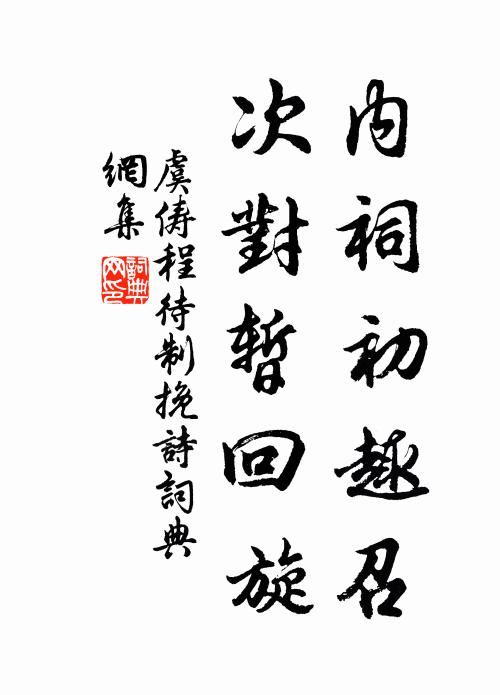 內祠初趣召
次對暫回旋
虞儔程待制挽詩詞典
網集
詞典网印